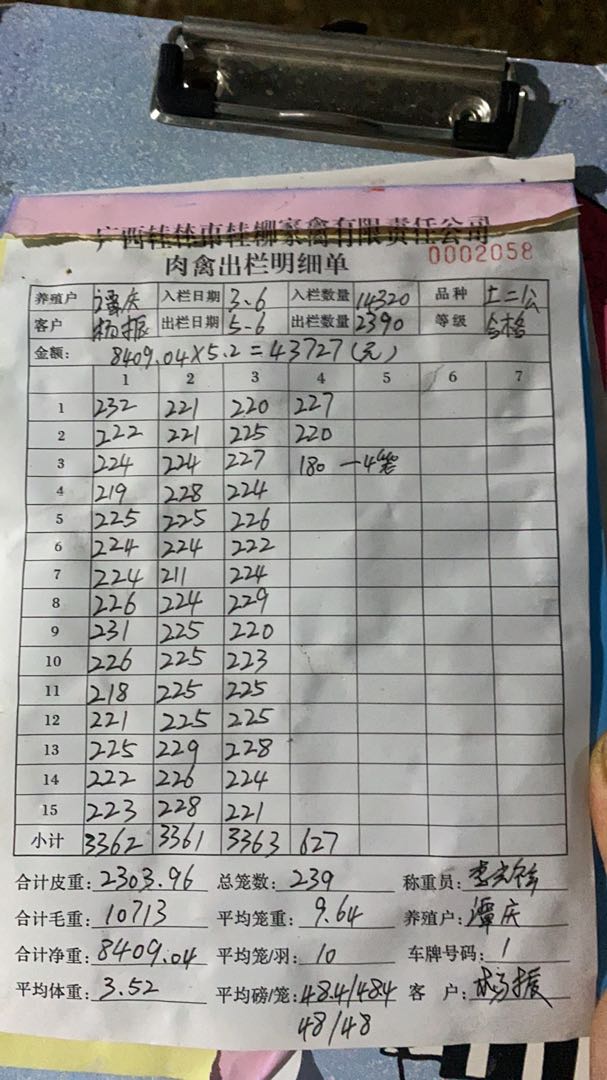 广西桂林市桂柳家禽有限责任公司
肉禽出栏明细单 0002058
养殖户 谭庆 入栏日期 3.6 入栏数量 14320 品种 土二公
客户 杨振 出栏日期 5-6 出栏数量 2390 等级 合格
金额: 8409.04×5.2=43727(元)
1 2 3 4 5 6 7
1 232 221 220 227
2 222 221 225 220
3 224 224 227 180 一4笼
4 219 228 224
5 225 225 226
6 224 224 222
7 224 211 224
8 226 224 229
9 231 225 220
10 226 225 223
11 218 225 225
12 221 225 225
13 225 229 228
14 222 226 224
15 223 228 221
小计 3362 3361 3363 627
合计皮重: 2303.96 总笼数: 239 称重员:
合计毛重: 10713 平均笼重: 9.64 养殖户: 谭庆
合计净重: 8409.04 平均笼/羽: 10 车牌号码: 1
平均体重: 3.52 平均磅/笼: 48.4/484 客 户: 杨振
48/48